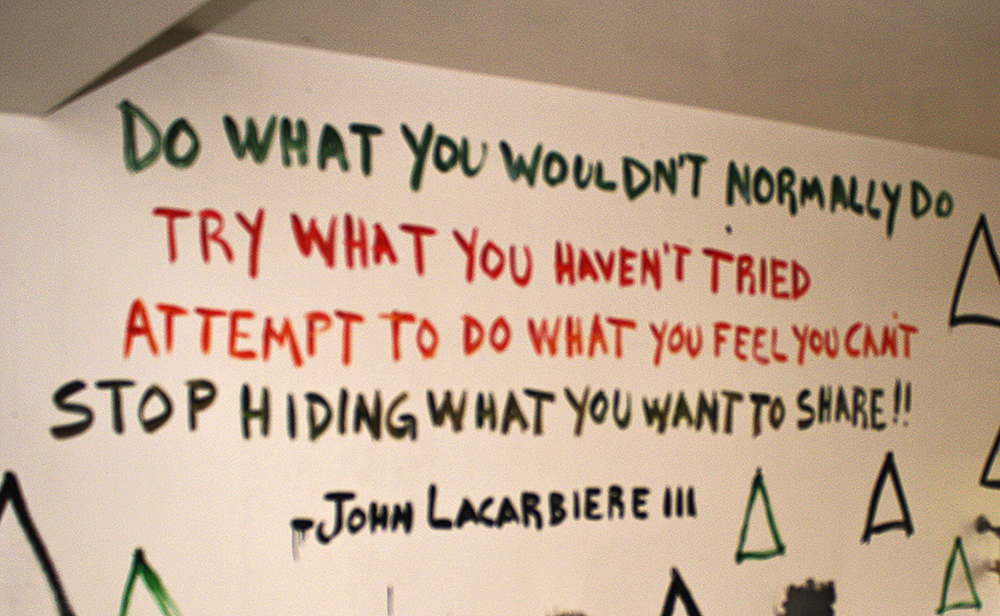 DO WHAT YOU WOULDN'T NORMALLY DO
TRY WHAT YOU HAVEN'T TRIED
ATTEMPT TO DO WHAT YOU FEEL YOU CAN'T
STOP HIDING WHAT YOU WANT TO SHARE!!
-JOHN LACARBIERE III